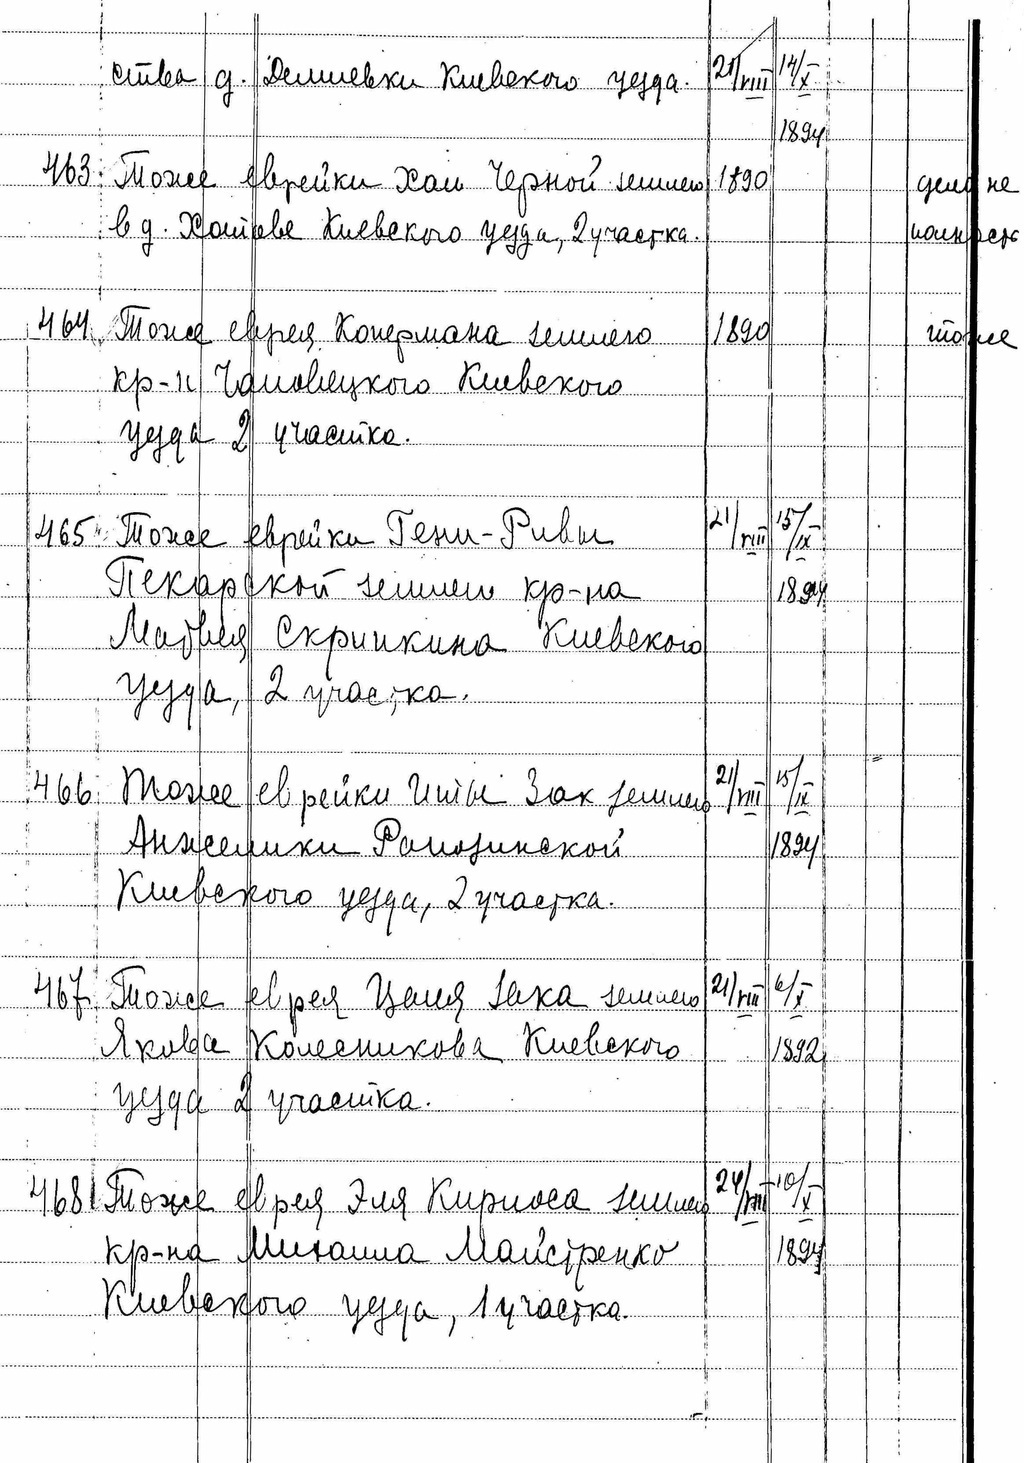 ства д. Демиевки Киевского уезда. 21/VIII 14/X
1894
463. Тоже еврейки Хаи Черной землею 1890 дело не
в д. Хотове Киевского уезда, 2 участка.
464. Тоже еврея Копермана землею 1890 тоже
кр-н Киевского
уезда 2 участка.
465 Тоже еврейки Гени-Ривы 21/VIII 15/IX
Пекарской землею кр-на 1894
Матвея Скрипкина Киевского
уезда, 2 участка.
466 Тоже еврейки Иты Зак землею 21/VIII 15/IX
Анжелики 1894
Киевского уезда, 2 участка.
467 Тоже еврея Зака землею 21/VIII 6/X
Якова Колесникова Киевского 1892
уезда 2 участка.
468 Тоже еврея Эля землею 24/VIII 10/X
кр-на Михаила Майстренко 1894
Киевского уезда, 1 участка.